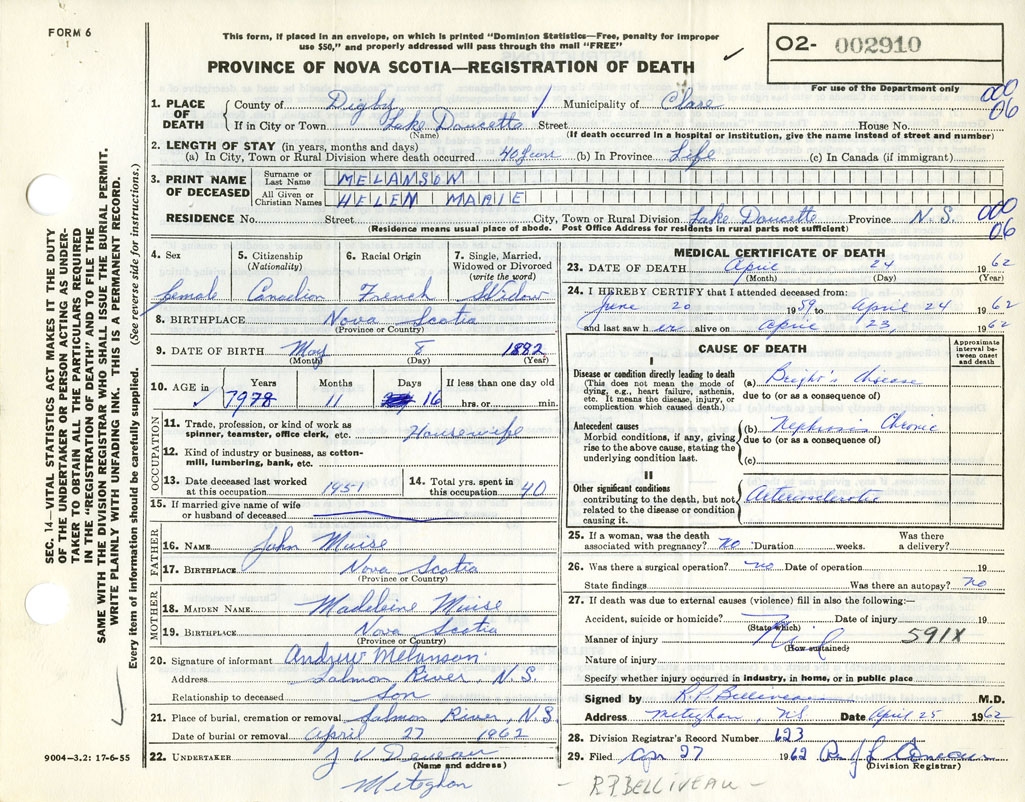 FORM 6
1
This form, if placed in an envelope, on which is printed "Dominion Statistics—Free, penalty for improper
use $50," and properly addressed will pass through the mail "FREE"
PROVINCE OF NOVA SCOTIA—REGISTRATION OF DEATH
O2- 002910
For use of the Department only
000
06
1. PLACE OF DEATH County of Digby Municipality of Clare
If in City or Town Lake Doucette Street House No.
(Name) (If death occurred in a hospital or institution, give the name instead of street and number)
2. LENGTH OF STAY (in years, months and days)
(a) In City, Town or Rural Division where death occurred 40 years (b) In Province Life (c) In Canada (if immigrant)
3. PRINT NAME OF DECEASED Surname or Last Name MELANSON
All Given or Christian Names HELEN MARIE
RESIDENCE No. Street City, Town or Rural Division Lake Doucette Province N.S.
000
06
(Residence means usual place of abode. Post Office Address for residents in rural parts not sufficient)
4. Sex 5. Citizenship (Nationality) 6. Racial Origin 7. Single, Married, Widowed or Divorced (write the word)
female Canadian French Widow
8. BIRTHPLACE Nova Scotia
(Province or Country)
9. DATE OF BIRTH May 8 1882
(Month) (Day) (Year)
10. AGE in Years Months Days If less than one day old
7978 11 16 hrs. or min.
OCCUPATION
11. Trade, profession, or kind of work as spinner, teamster, office clerk, etc. Housewife
12. Kind of industry or business, as cotton-mill, lumbering, bank, etc.
13. Date deceased last worked at this occupation 1951 14. Total yrs. spent in this occupation 40
15. If married give name of wife or husband of deceased
FATHER
16. NAME John Muise
17. BIRTHPLACE Nova Scotia
(Province or Country)
MOTHER
18. MAIDEN NAME Madeleine Muise
19. BIRTHPLACE Nova Scotia
(Province or Country)
20. Signature of informant Andrew Melanson
Address Salmon River, N.S.
Relationship to deceased Son
21. Place of burial, cremation or removal Salmon River, N.S.
Date of burial or removal April 27 1962
22. UNDERTAKER J V Deveau
(Name and address)
Meteghan
MEDICAL CERTIFICATE OF DEATH
23. DATE OF DEATH April 24 1962
(Month) (Day) (Year)
24. I HEREBY CERTIFY that I attended deceased from:
June 20 1959 to April 24 1962
and last saw her alive on April 23, 1962
CAUSE OF DEATH
Approximate interval between onset and death
I
Disease or condition directly leading to death
(This does not mean the mode of dying, e.g., heart failure, asthenia, etc. It means the disease, injury, or complication which caused death.)
(a) Bright's disease
due to (or as a consequence of)
Antecedent causes
Morbid conditions, if any, giving rise to the above cause, stating the underlying condition last.
(b) Nephrosis Chronic
due to (or as a consequence of)
(c)
II
Other significant conditions
contributing to the death, but not related to the disease or condition causing it.
Arteriosclerotic
25. If a woman, was the death associated with pregnancy? no Duration weeks. Was there a delivery?
26. Was there a surgical operation? no Date of operation 19
State findings Was there an autopsy? no
27. If death was due to external causes (violence) fill in also the following:—
Accident, suicide or homicide? Date of injury 19
(State which)
Manner of injury Nil 591X
(How sustained)
Nature of injury
Specify whether injury occurred in industry, in home, or in public place
Signed by R.P. Belliveau M.D.
Address Meteghan, NS Date April 25 1962
28. Division Registrar's Record Number 623
29. Filed apr 27 1962
(Division Registrar)
- R.P. BELLIVEAU -
SEC. 14—VITAL STATISTICS ACT MAKES IT THE DUTY
OF THE UNDERTAKER OR PERSON ACTING AS UNDER-
TAKER TO OBTAIN ALL THE PARTICULARS REQUIRED
IN THE "REGISTRATION OF DEATH" AND TO FILE THE
SAME WITH THE DIVISION REGISTRAR WHO SHALL ISSUE THE BURIAL PERMIT.
WRITE PLAINLY WITH UNFADING INK. THIS IS A PERMANENT RECORD.
Every item of information should be carefully supplied. (See reverse side for instructions.)
9004—3.2: 17-6-55